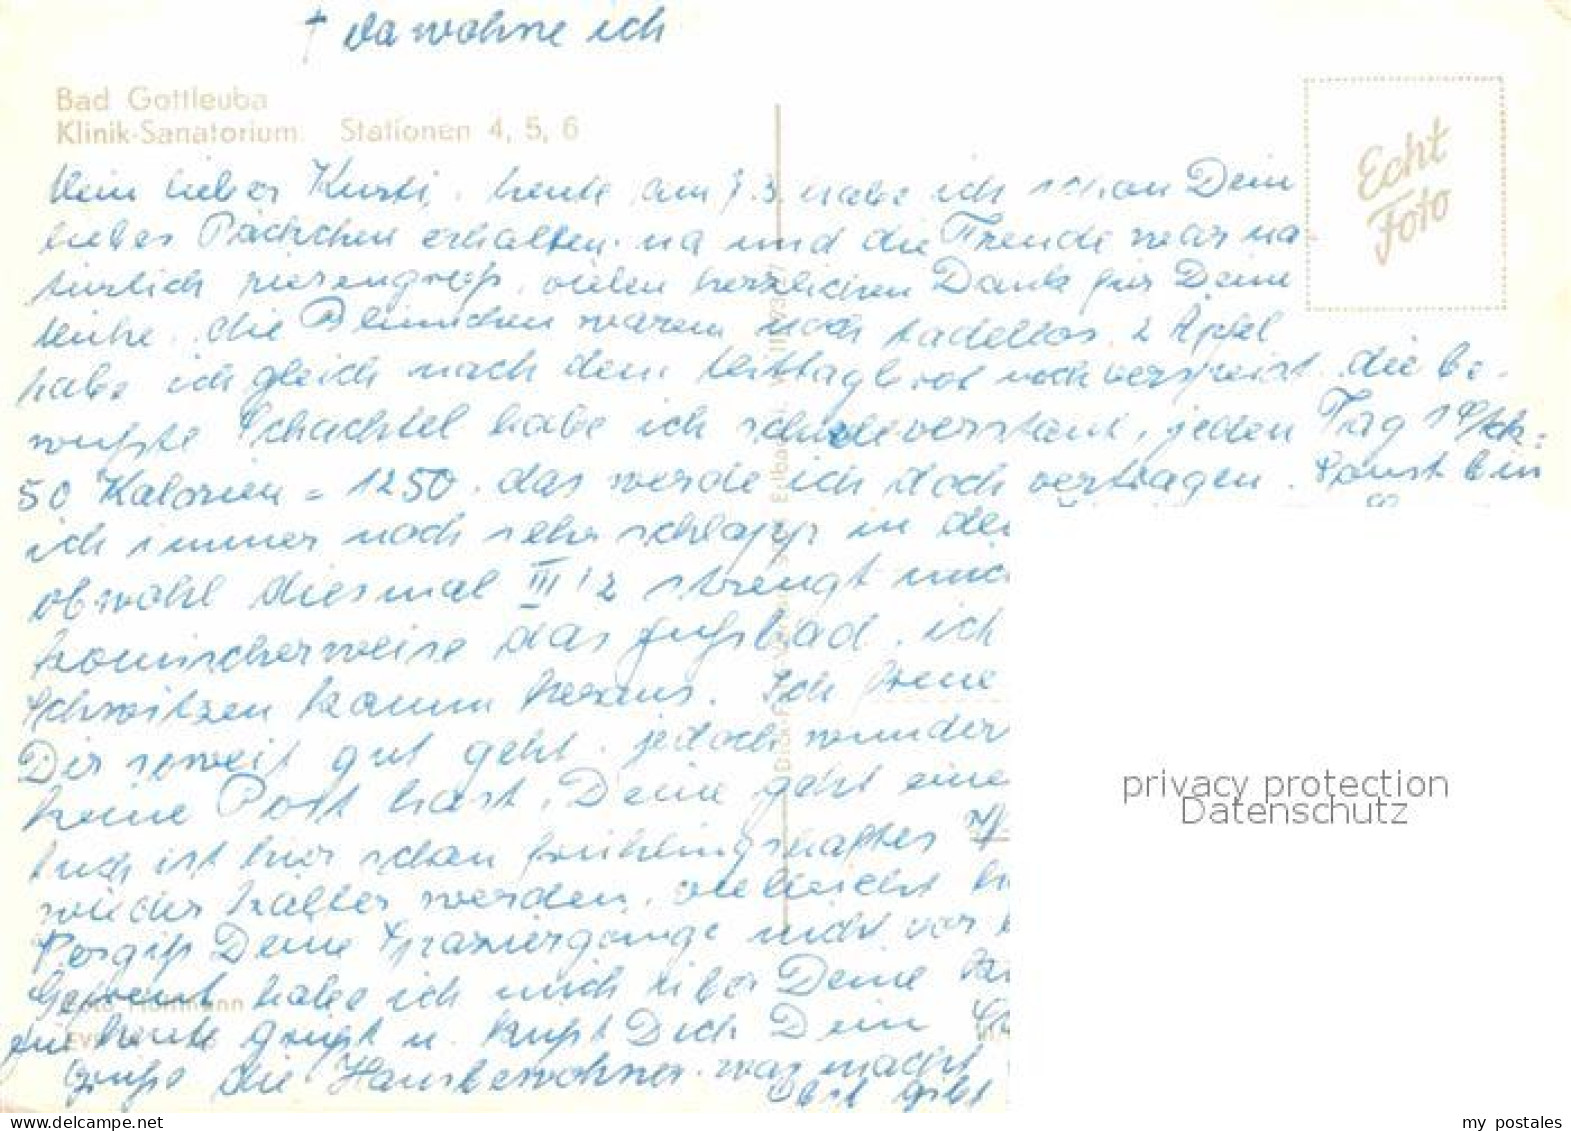 ↑ da wohne ich
Bad Gottleuba
Klinik-Sanatorium: Stationen 4, 5, 6
Echt
Foto
Mein lieber Kurti, heute am 7.3. habe ich schon Dein
liebes Päckchen erhalten, na und die Freude war na
türlich riesengroß, vielen herzlichen Dank für Deine
Mühe. die Blümchen waren noch tadellos. 2 Äpfel
habe ich gleich nach dem Mittagbrot noch verspeist. die be-
wußte Schachtel habe ich schon verstaut, jeden Tag 1 Stck =
50 Kalorien = 1250. das werde ich doch vertragen. Sonst bin
ich immer noch sehr schlapp in de
obwohl diesmal III 1/2 strengt
komischerweise das Fußbad. ich
Schwitzen kaum heraus. Ich freue
Dir soweit gut geht. jedoch wunder
keine Post hast. Deine geht eine
Auch ist hier schon frühlingshaftes
wieder kälter werden, vielleicht
Vergiß Deine Spaziergänge nicht vor
Gefreut habe ich mich über Deine
für heute grüßt u. küßt Dich Dein
Grüße die Hausbewohner. was macht
Obst gibt
Foto Hoffmann
privacy protection
Datenschutz
my postales